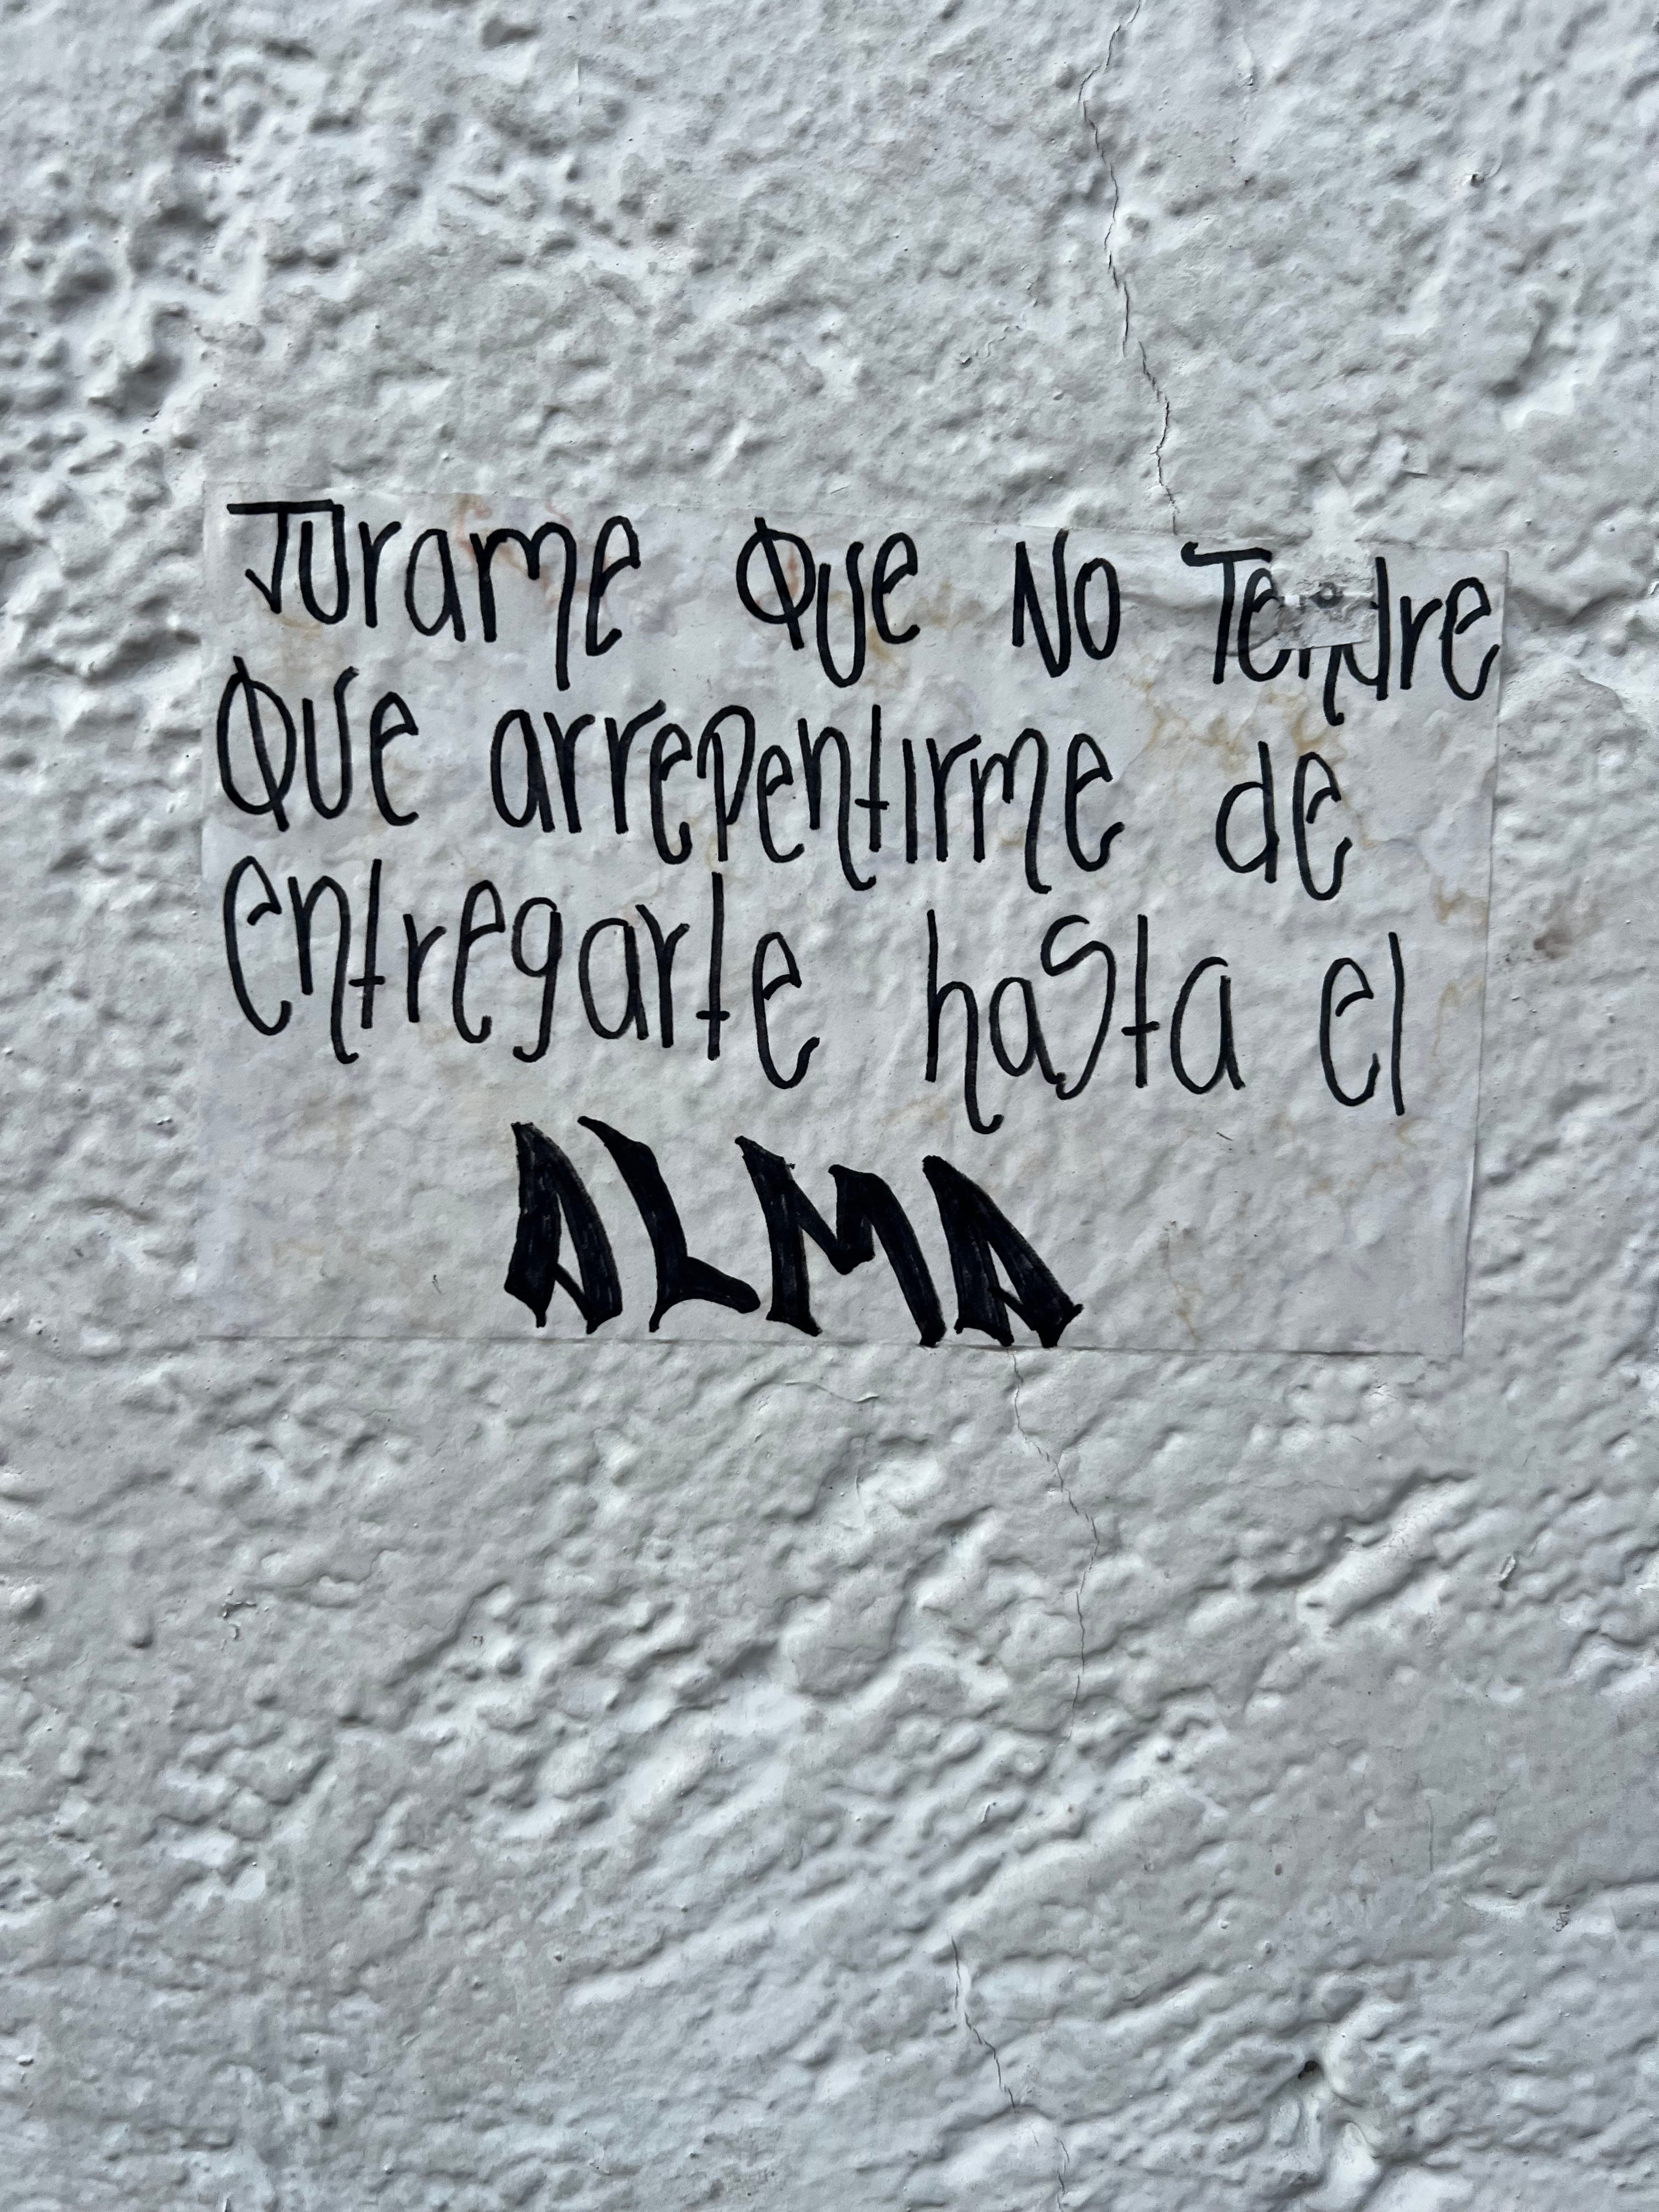 Jurame Que No Tendre
Que arrepentirme de
entregarte hasta el
ALMA